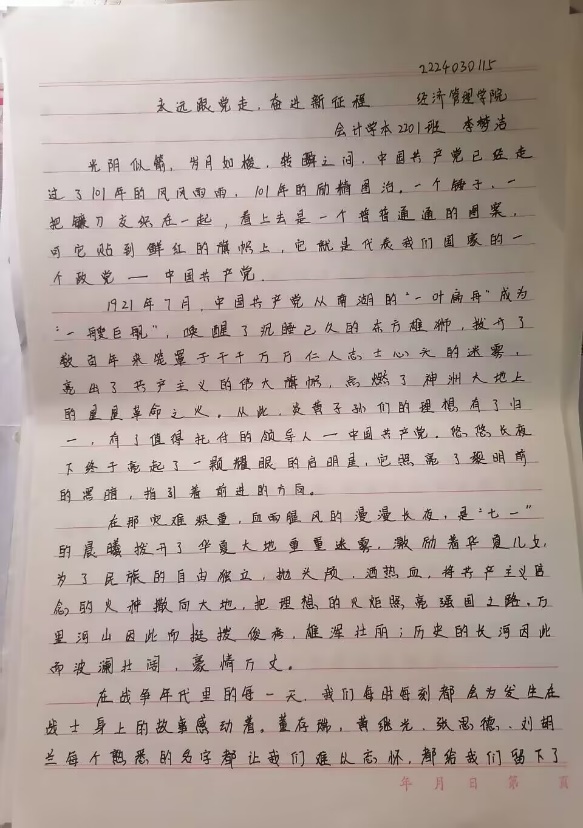 2224030115
永远跟党走,奋进新征程 经济管理学院
会计学本2201班 李梦洁
光阴似箭,岁月如梭,转瞬之间,中国共产党已经走
过了101年的风风雨雨,101年的励精图治。一个锤子,一
把镰刀交织在一起,看上去是一个普普通通的图案,
可它贴到鲜红的旗帜上,它就是代表我们国家的一
个政党——中国共产党。
1921年7月,中国共产党从南湖的"一叶扁舟"成为
"一艘巨舰",唤醒了沉睡已久的东方雄狮,拨开了
数百年来笼罩于千千万万仁人志士心头的迷雾,
亮出了共产主义的伟大旗帜,点燃了神洲大地上
的星星革命之火。从此,炎黄子孙们的理想有了归
一,有了值得托付的领导人—中国共产党。悠悠长夜
下终于亮起了一颗耀眼的启明星,它照亮了黎明前
的黑暗,指引着前进的方向。
在那灾难频重,血雨腥风的漫漫长夜,是"七一"
的晨曦拨开了华夏大地重重迷雾,激励着华夏儿女
为了民族的自由独立,抛头颅,洒热血,将共产主义信
念的火种撒向大地,把理想的火炬照亮强国之路。万
里河山因此而挺拨俊秀,雄浑壮丽;历史的长河因此
而波澜壮阔,豪情万丈。
在战争年代里的每一天,我们每时每刻都会为发生在
战士身上的故事感动着。董存瑞,黄继光,张思德,刘胡
兰每个熟悉的名字都让我们难以忘怀,都给我们留下了
年 月 日 第 页